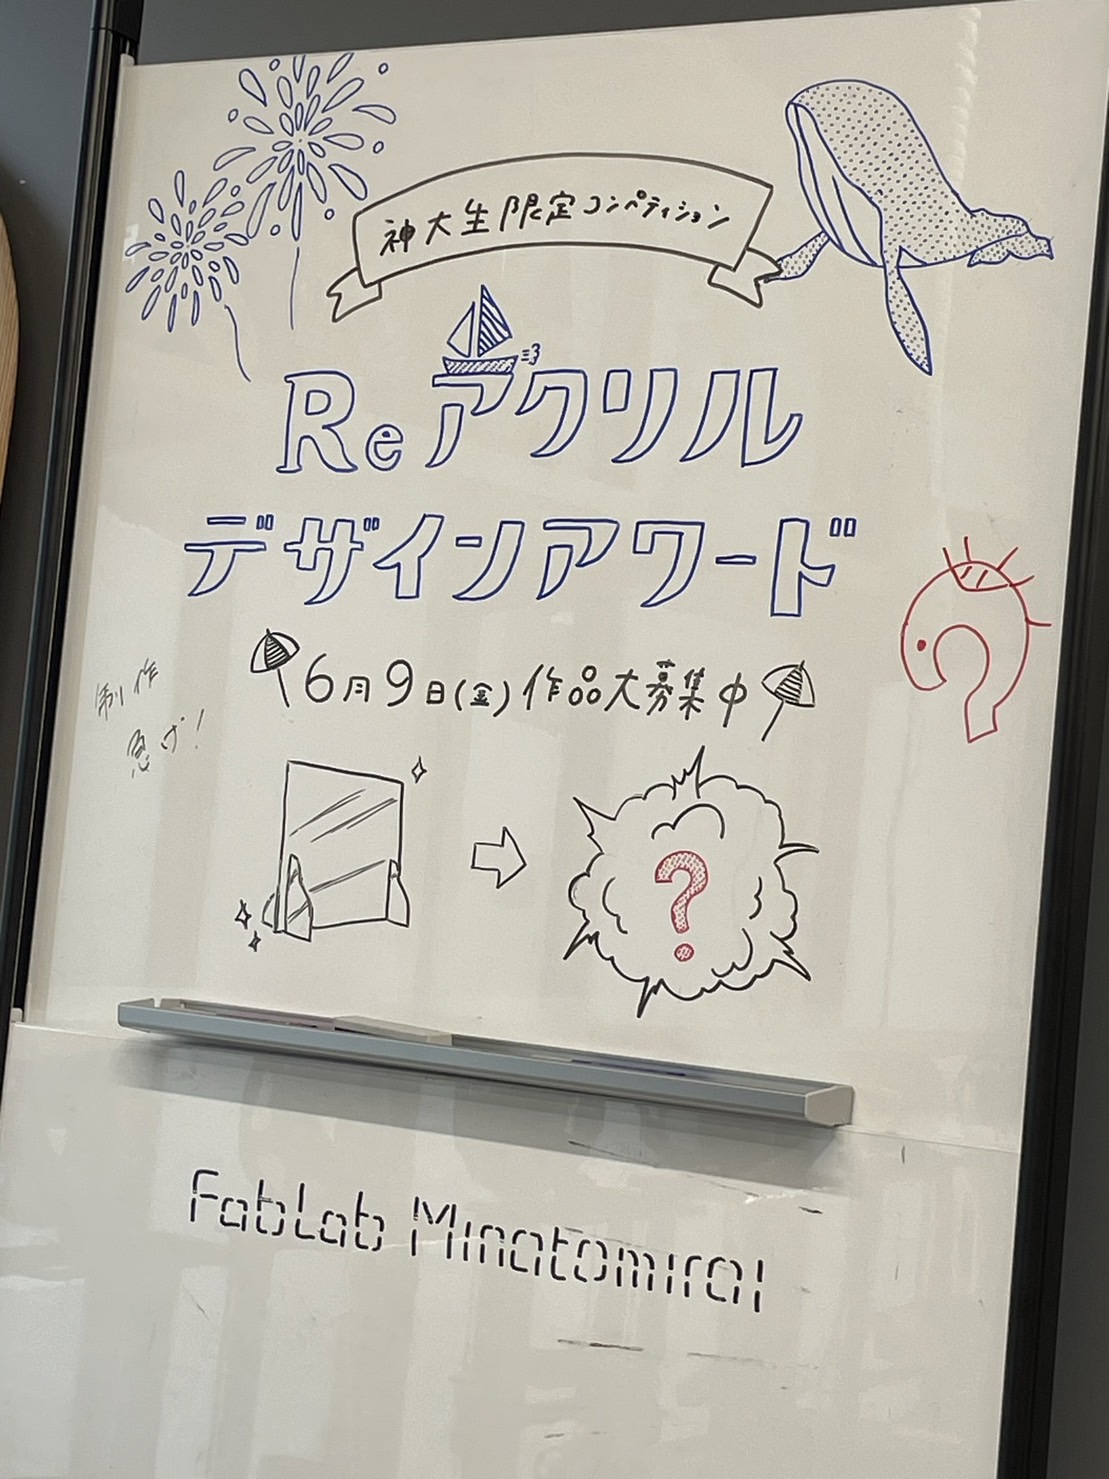 神大生限定コンペティション
Reアクリル
デザインアワード
6月9日(金)作品大募集中
制作
急げ!
?
FabLab Minatomirai